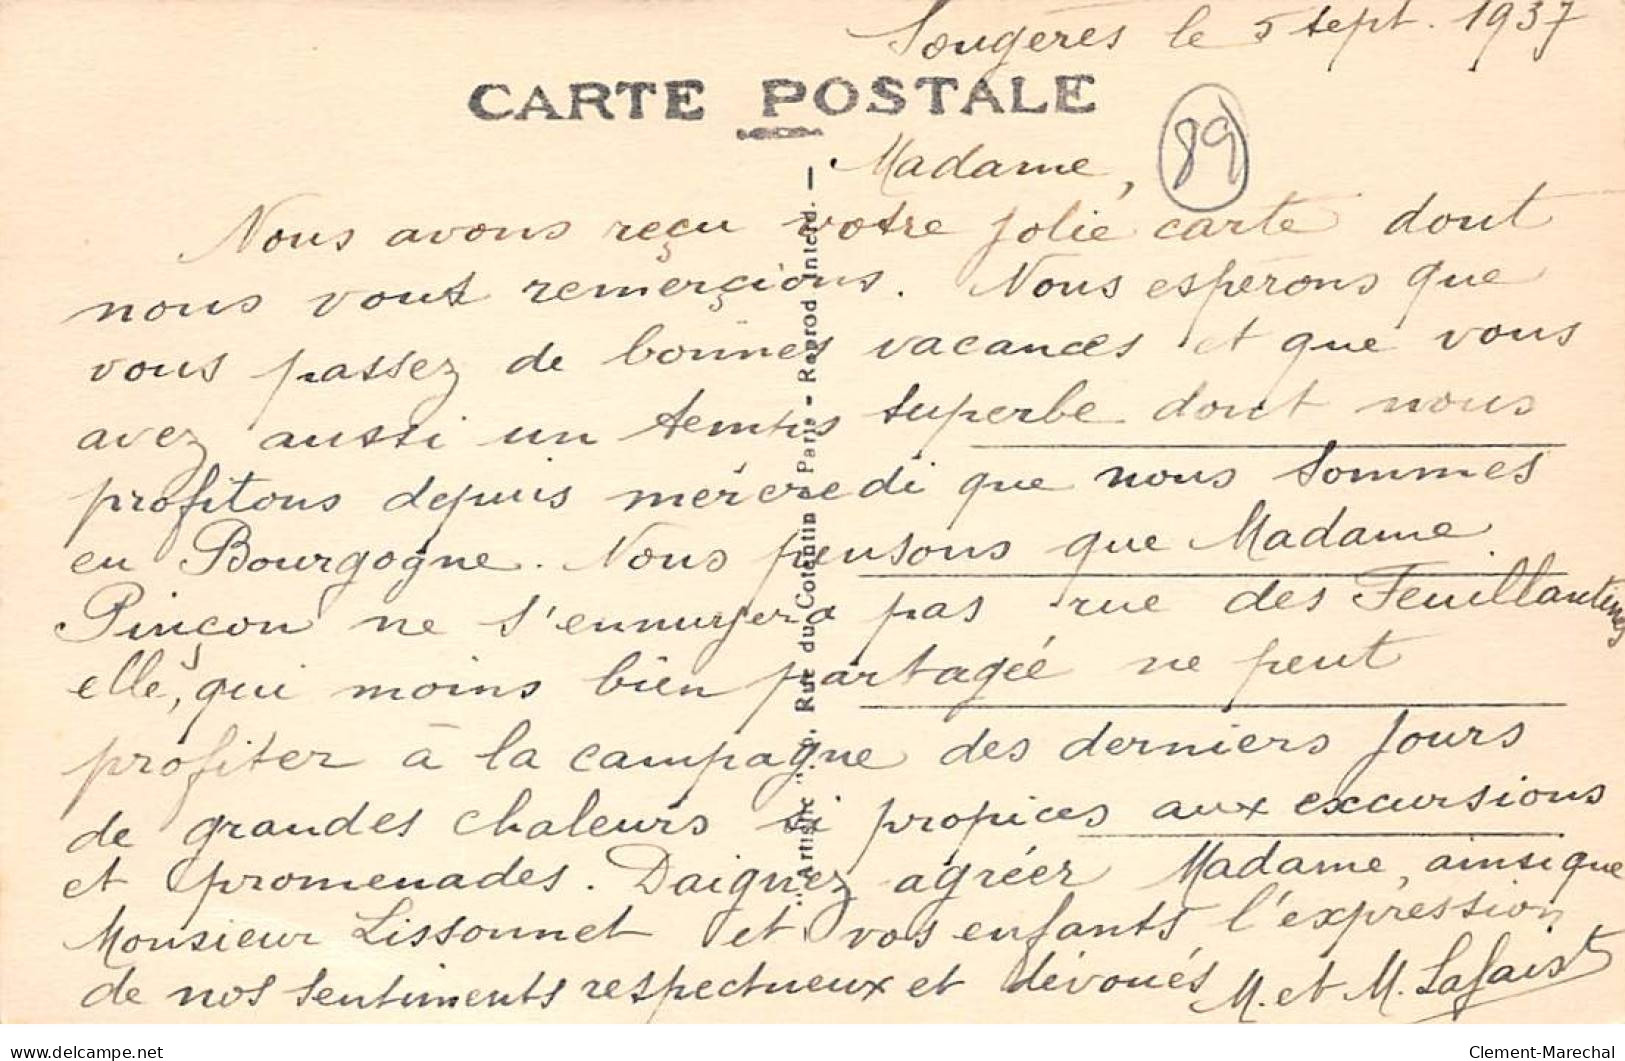 Sougères le 5 sept. 1937
CARTE POSTALE
89
Madame,
Nous avons reçu votre jolie carte dont
nous vous remerçions. Nous espérons que
vous passez de bonnes vacances et que vous
avez aussi un temps superbe dont nous
profitons depuis mercredi que nous sommes
en Bourgogne. Nous pensons que Madame
Pinçon ne s'ennuyera pas rue des Feuillantines
elle, qui moins bien partagée ne peut
profiter à la campagne des derniers jours
de grandes chaleurs si propices aux excursions
et promenades. Daignez agréer Madame, ainsi que
Monsieur Lissonnet et vos enfants l'expression
de nos sentiments respectueux et dévoués M. et M. Lafaist
"Artistic" Rue du Cotentin Paris - Reprod Interd. —
delcampe.net
Clement-Marechal